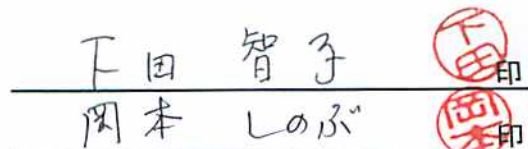 下田 智子 下田 印
岡本 しのぶ 岡本 印